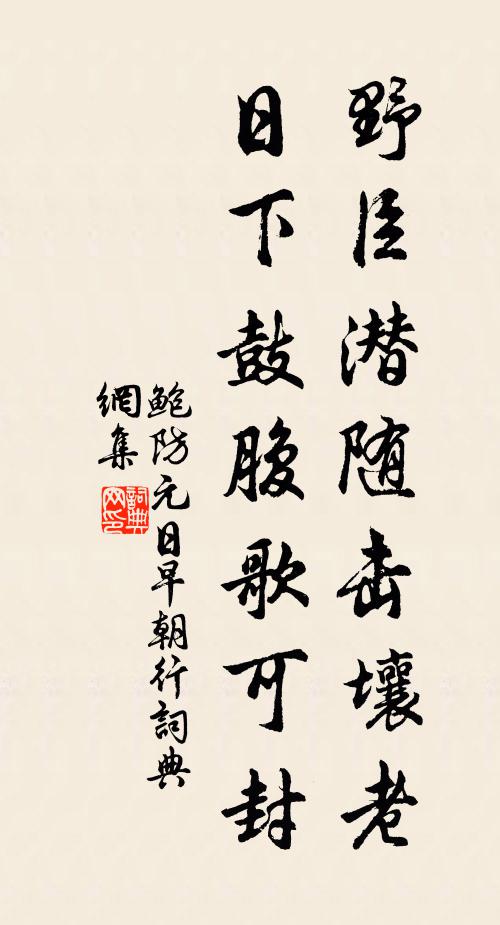 野臣潜随击壤老
日下鼓腹歌可封
鲍防元日早朝行詞典
網集
詞典網印